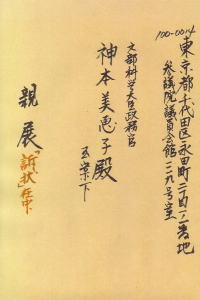 100-0014
東京都千代田区永田町二丁目一番地
参議院議員会館二二九号室
文部科学大臣政務官
神本美恵子殿
玉案下
親展「訴状」在中